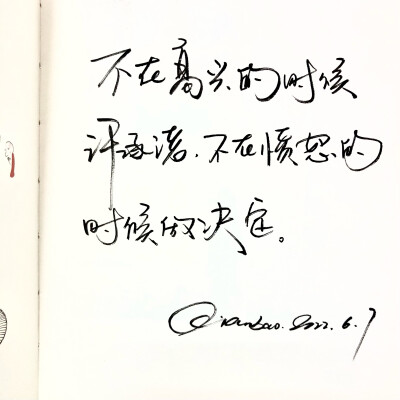 不在高兴的时候
许承诺.不在愤怒的
时候做决定。
2022.6.7